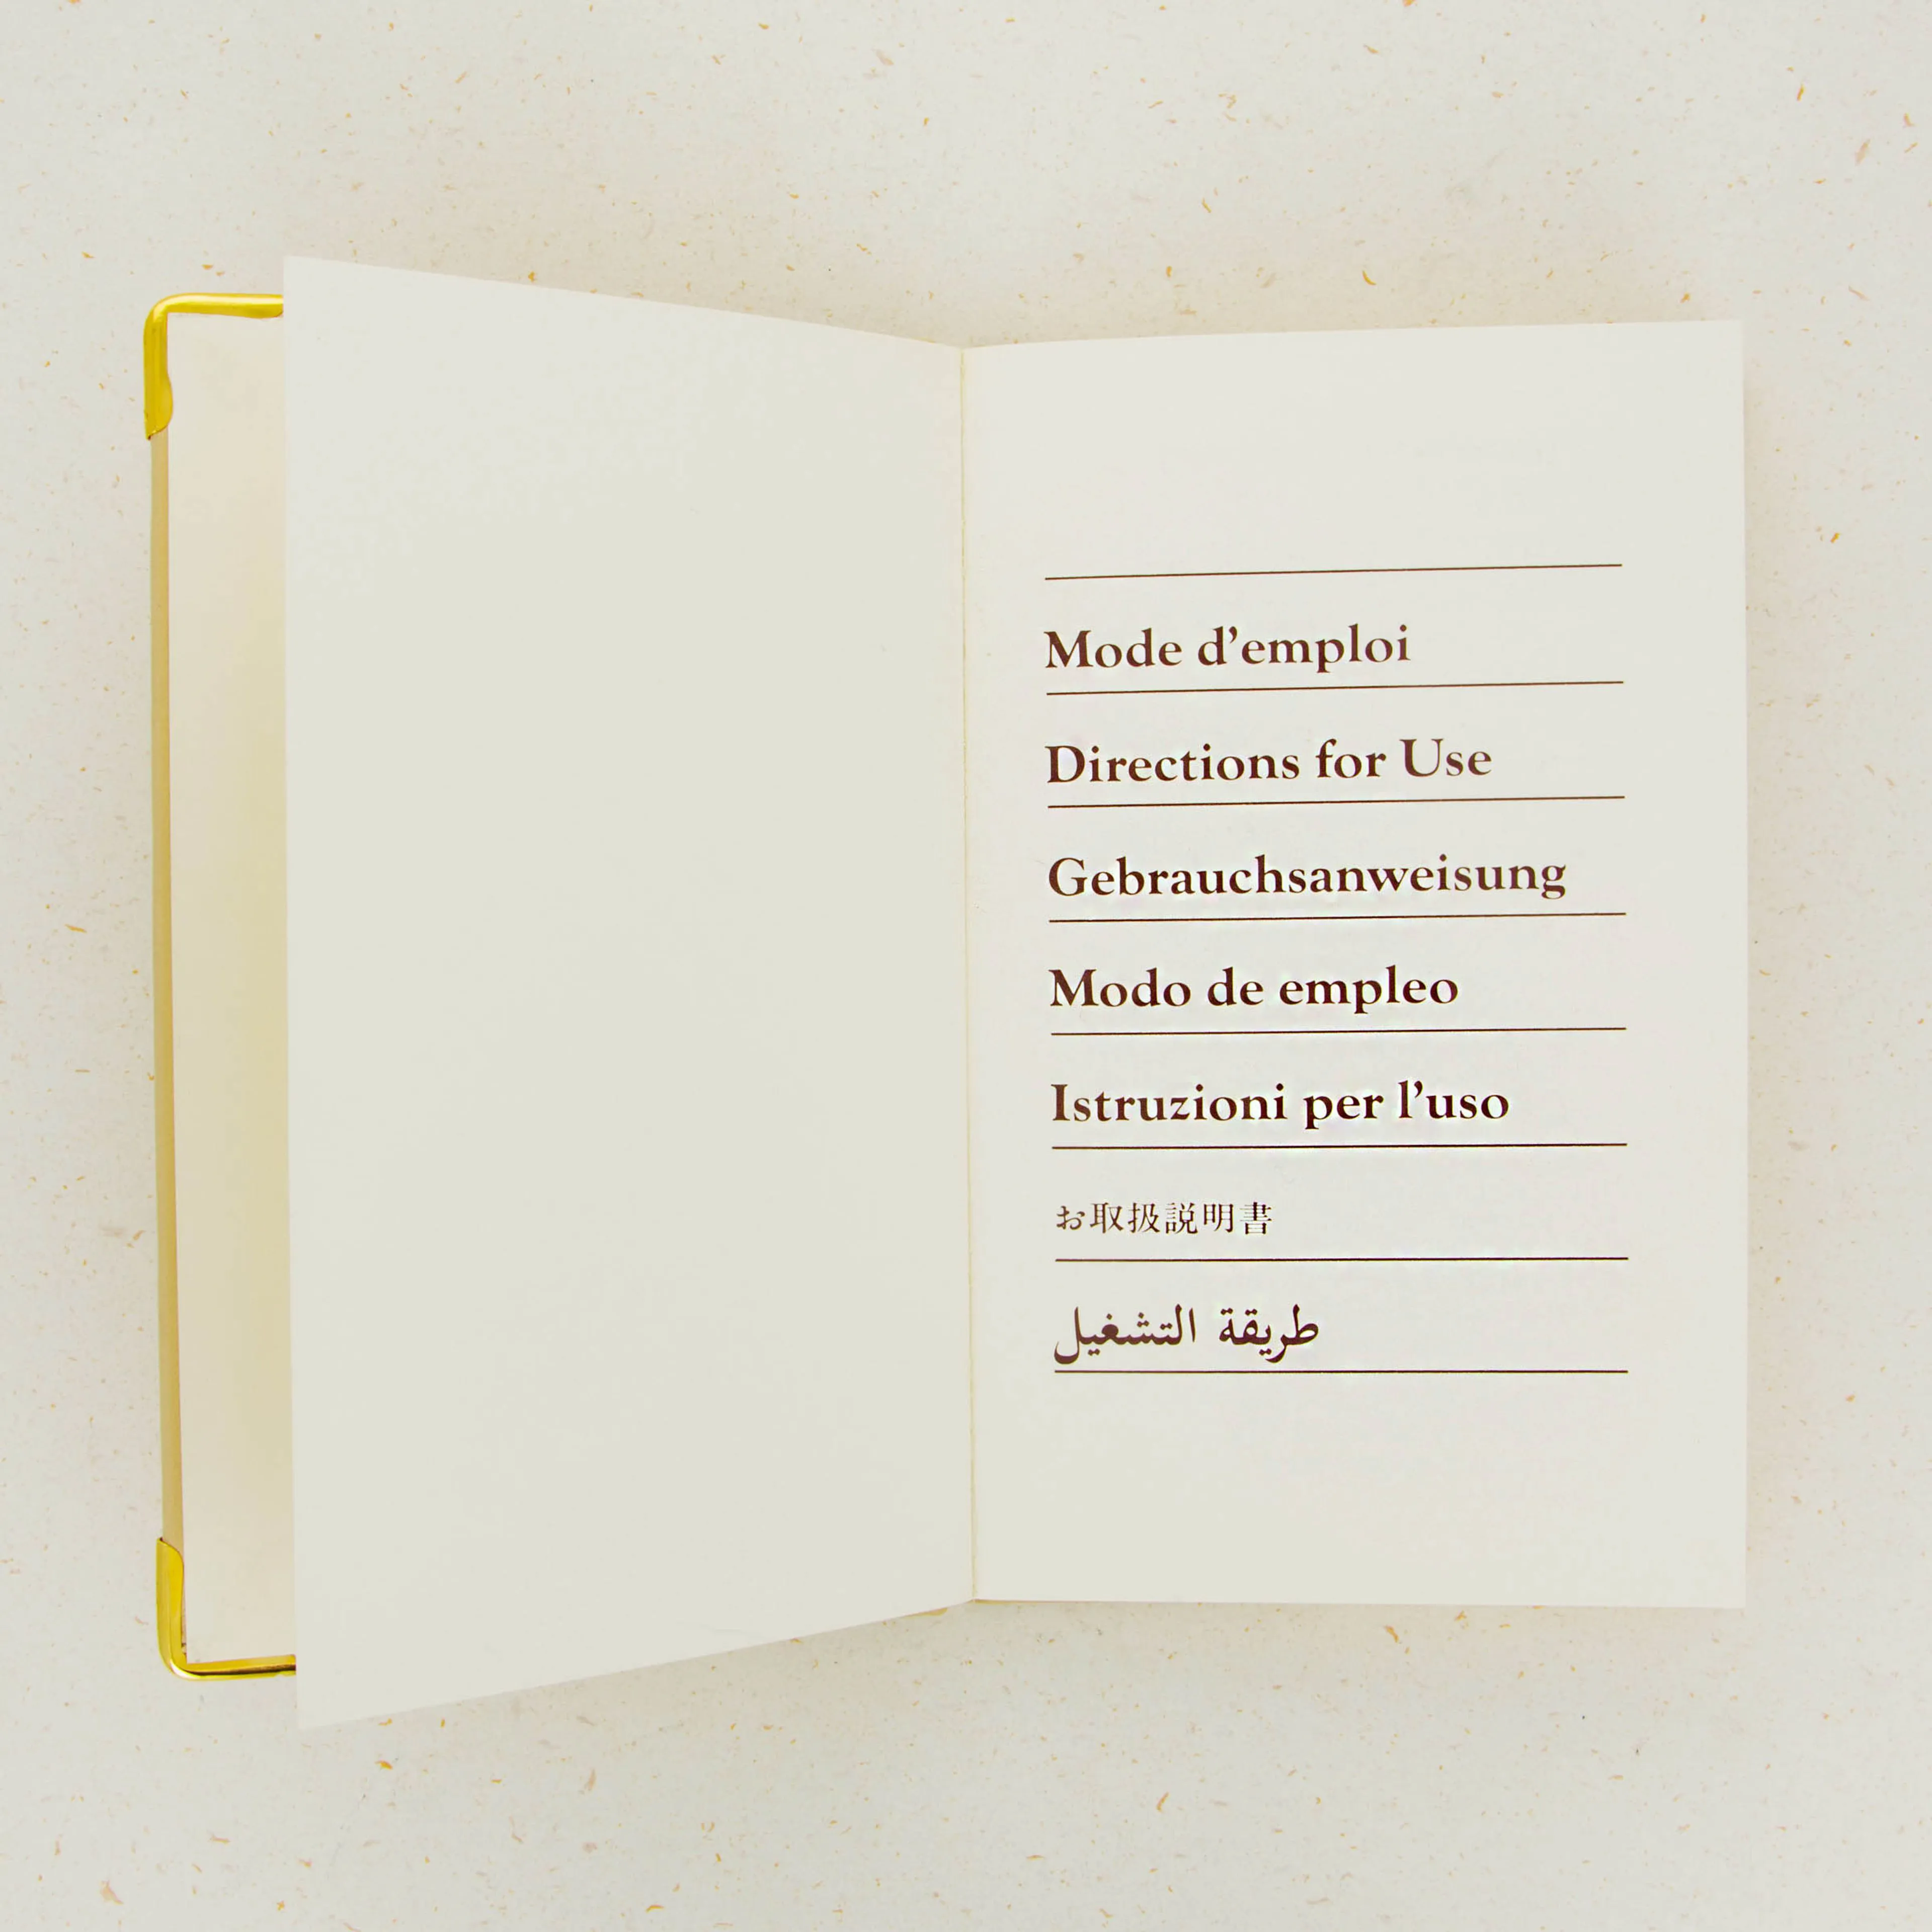 Mode d’emploi
Directions for Use
Gebrauchsanweisung
Modo de empleo
Istruzioni per l’uso
お取扱説明書
طريقة التشغيل